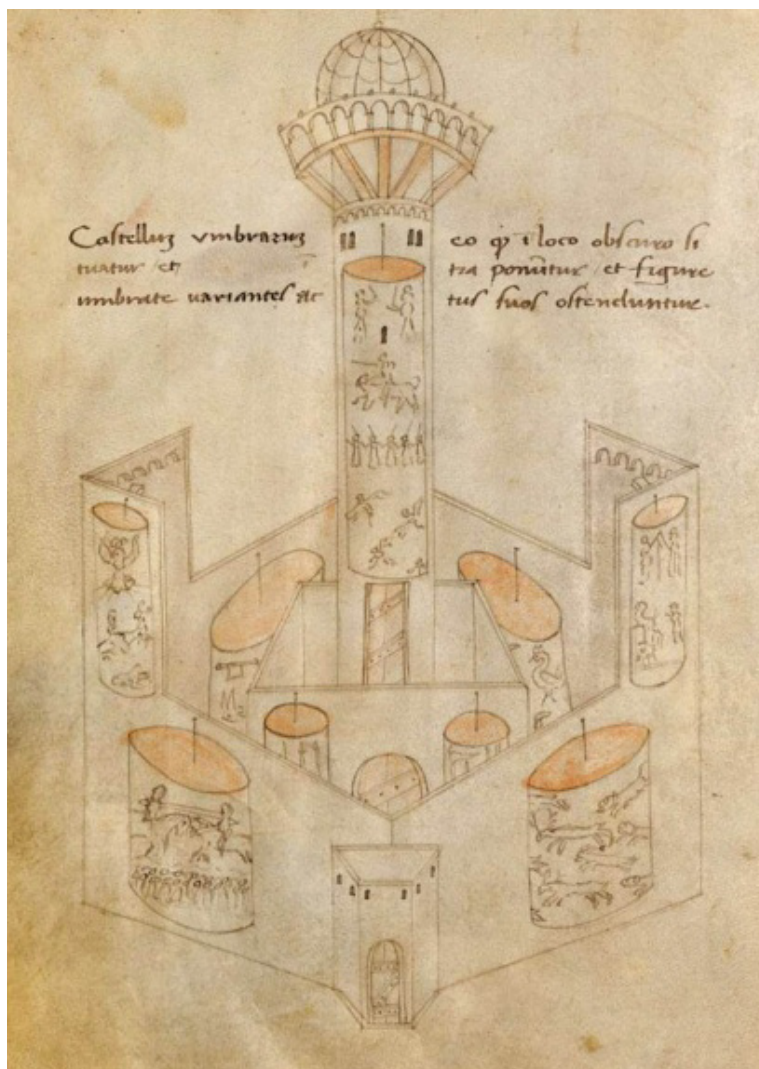 Castelluz vmbraruz eo qp i loco obscuro si
tuatur et tra ponutur et figure
umbrate variantes ac tus suos ostenduntur.